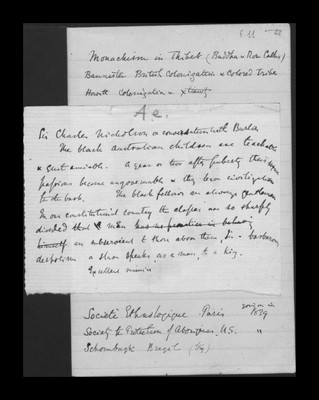 Monachism in Thibet (Buddha & Rom Cathc)
Bannister British Colonization & Colored Tribes
Howitt Colonization & Xtianity
Ae.
Sir Charles Nicholson in conversation with Busk
The black Australian children are teachable
& quite amiable. A year or two after puberty their
passions become ungovernable & they leave civilization
for the bush. The black fellows are always gentlemen
In our constitutional country the classes are so sharply
divided that man has no practice in behaving
himself in subservient to those above them, in barbarous
despotism a slave speaks as a man, to a king.
Excellent mimics
Société Ethnologique Paris going on in 1839
Society for Protection of Aborigines, U.S. "
Schomburgk Brazil